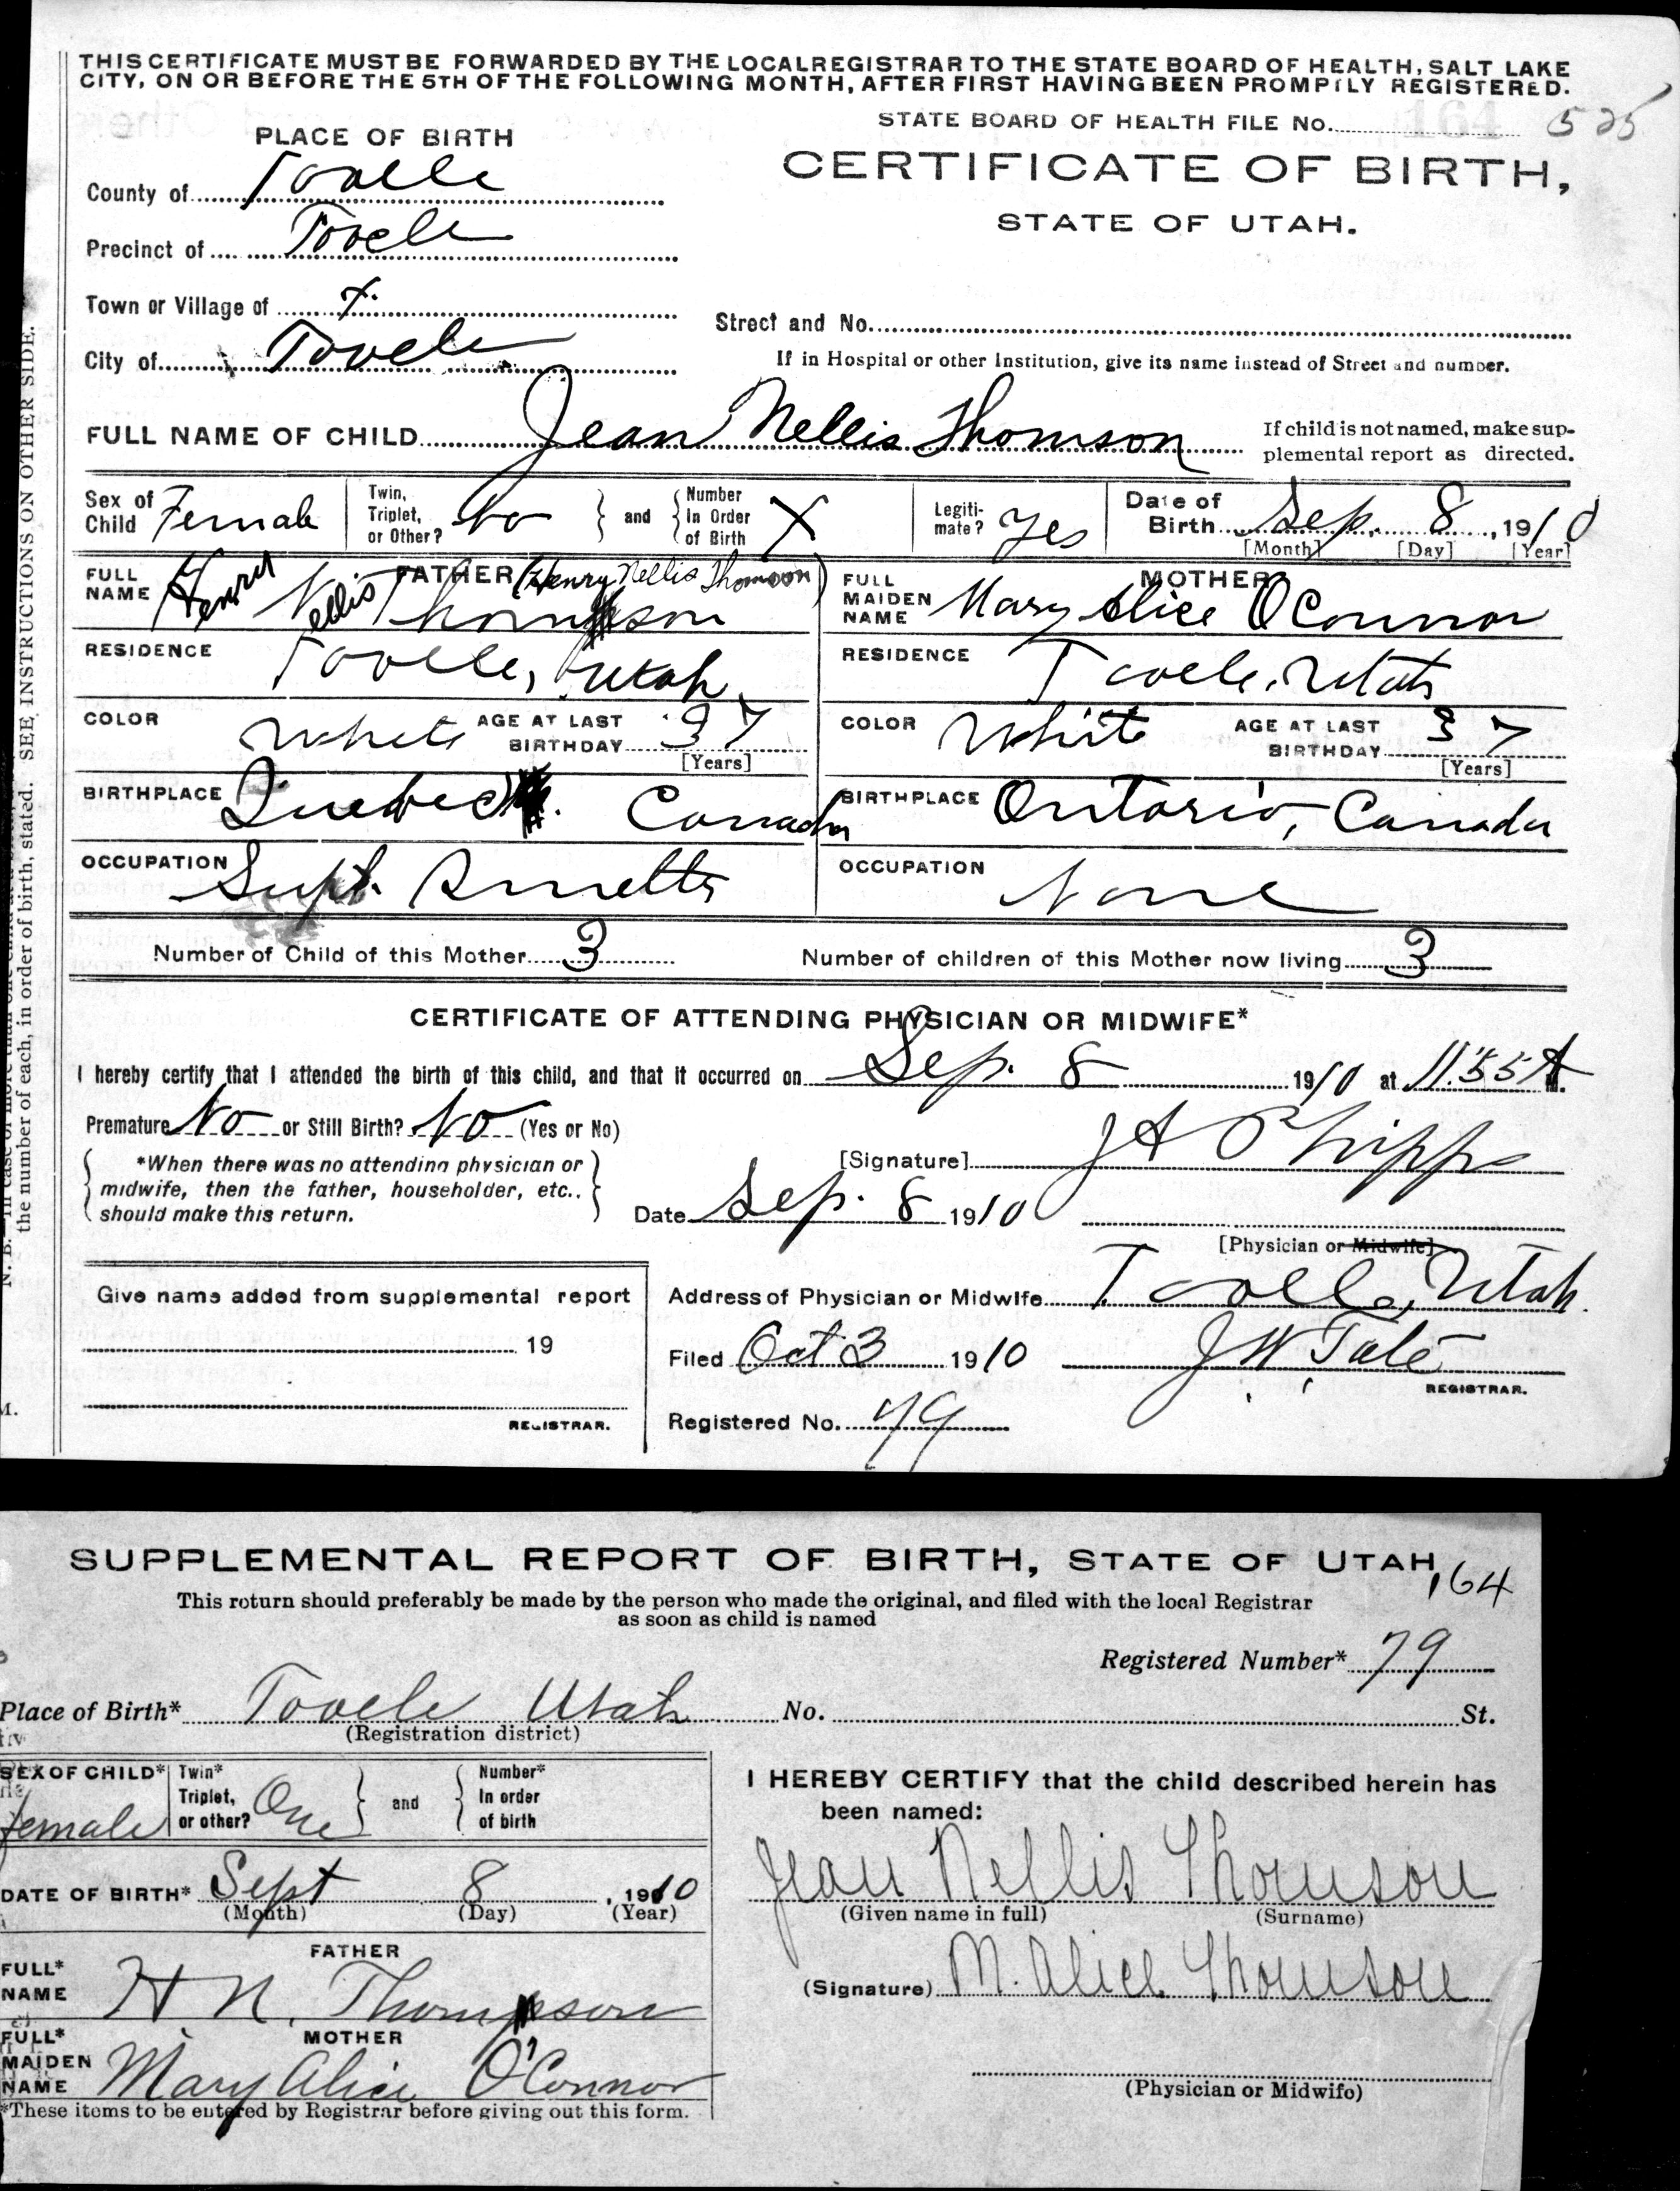 THIS CERTIFICATE MUST BE FORWARDED BY THE LOCAL REGISTRAR TO THE STATE BOARD OF HEALTH, SALT LAKE
CITY, ON OR BEFORE THE 5TH OF THE FOLLOWING MONTH, AFTER FIRST HAVING BEEN PROMPTLY REGISTERED.
STATE BOARD OF HEALTH FILE No. 164 525
PLACE OF BIRTH
CERTIFICATE OF BIRTH,
STATE OF UTAH.
County of Tooele
Precinct of Tooele
Town or Village of X
Street and No.
City of Tooele
If in Hospital or other Institution, give its name instead of Street and number.
FULL NAME OF CHILD Jean Nellis Thomson
If child is not named, make sup-
plemental report as directed.
Sex of Child Female
Twin, Triplet, or Other? No and Number In Order of Birth X
Legiti-mate? Yes
Date of Birth Sep. 8, 1910
[Month] [Day] [Year]
FATHER (Henry Nellis Thomson)
FULL NAME Henry Nellis Thomson
MOTHER
FULL MAIDEN NAME Mary Alice O'Connor
RESIDENCE Tooele, Utah
RESIDENCE Tooele, Utah
COLOR White AGE AT LAST BIRTHDAY 37 [Years]
COLOR White AGE AT LAST BIRTHDAY 37 [Years]
BIRTHPLACE Quebec Canada
BIRTHPLACE Ontario, Canada
OCCUPATION Supt. Smelter
OCCUPATION None
Number of Child of this Mother 3
Number of children of this Mother now living 3
CERTIFICATE OF ATTENDING PHYSICIAN OR MIDWIFE*
I hereby certify that I attended the birth of this child, and that it occurred on Sep. 8 1910 at 11:55 A M.
Premature No or Still Birth? No (Yes or No)
*When there was no attending physician or
midwife, then the father, householder, etc.,
should make this return.
[Signature] J A Phipps
Date Sep. 8 1910
[Physician or Midwife]
Address of Physician or Midwife Tooele, Utah.
Give name added from supplemental report
19
REGISTRAR.
Filed Oct 3 1910 J W Tate
REGISTRAR.
Registered No. 79
the number of each, in order of birth, stated. SEE INSTRUCTIONS ON OTHER SIDE.
SUPPLEMENTAL REPORT OF BIRTH, STATE OF UTAH
164
This return should preferably be made by the person who made the original, and filed with the local Registrar
as soon as child is named
Registered Number* 79
Place of Birth* Tooele Utah No. St.
(Registration district)
SEX OF CHILD* female
Twin* Triplet, or other? One and Number* In order of birth
DATE OF BIRTH* Sept 8, 1910
(Month) (Day) (Year)
I HEREBY CERTIFY that the child described herein has
been named:
Jean Nellis Thomson
(Given name in full) (Surname)
FATHER
FULL* NAME H. N. Thomson
(Signature) M. Alice Thomson
MOTHER
FULL* MAIDEN NAME Mary Alice O'Connor
(Physician or Midwife)
*These items to be entered by Registrar before giving out this form.